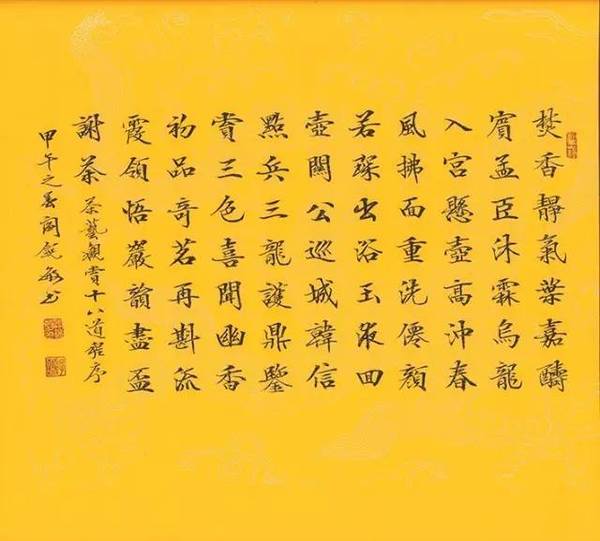 焚香靜氣葉嘉醻
賓孟臣沐霖烏龍
入宮懸壺高沖春
風拂面重洗僊顏
若琛出浴玉液回
壺關公巡城韓信
點兵三龍護鼎鑒
賞三色喜聞幽香
初品奇茗再斟流
霞領悟巖韻盡盃
謝茶 茶藝觀賞十八道程序
甲午之